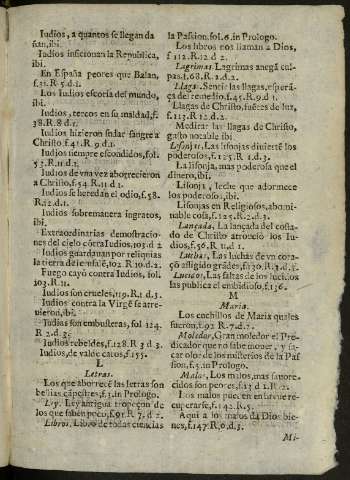 Iudios, a quantos se llegan da
ñan, ibi.
Iudios inficionan la Republica,
ibi.
En España peores que Balan,
f.33.R.5.d.1.
Los Iudios escoria del mundo,
ibi.
Iudios, tercos en su maldad, f.
38.R.9.d.
Iudios hizieron sudar sangre a
Christo, f.41.R.9.d.1.
Iudios siempre escondidos, fol.
52.R.11.d.1.
Iudios de vna vez aborrecieron
a Christo, f.54.R.11.d.1.
Iudios se heredan el odio, f.58.
R.12.d.1.
Iudios sobremanera ingratos,
ibi.
Extraordinarias demostracio-
nes del cielo cõtra Iudios. 103.d 2
Iudios guardauan por reliquias
la tierra de Ierusalẽ, 102 R.10.d.2.
Fuego cayò contra Iudios, fol.
103.R.11.
Iudios son crueles, 119.R.1.d.3.
Iudios contra la Virgẽ se atre-
uieron, ibi.
Iudias son embusteras, fol 124.
R 2.d.3.
Iudios rebeldes, f.128.R 3 d 3.
Iudios, de valde catos, f.155.
L
Letras.
Los que aborrecẽ las letras son
bestias cãpestres, f.3. in Prologo.
Ley. Ley antigua tropeçon de
los que sabẽn poco, f.91.R 7. d 2.
Libros. Libro de todas ciencias
la Passion. fol.6. in Prologo.
Los libros nos llaman a Dios,
f 112.R.12 d 2.
Lagrimas. Lagrimas anegã cul-
pas. f.68.R.2.d.2.
Llaga. Sentir las llagas, esperã-
ça del remedio, f.45.R.9.d 1.
Llagas de Christo, fuẽtes de luz,
f.113.R.12.d.2.
Meditar las llagas de Christo,
gusto notable ibi.
Lisonjas. Las lisonjas diuiertẽ los
poderosos, f.125.R 1.d.3.
La lisonja, mas poderosa que el
dinero, ibi.
Lisonja, leche que adormece
los poderosos, ibi.
Lisonjas en Religiosos, abomi-
nable cosa, f.125.R.2.d.3.
Lançada. La lançada del costa-
do de Christo atronciò los Iu-
dios, f.56.R 11.d 1.
Luchas. Las luchas de vn cora-
çõ afligido grãdes, f.130.R.3.d.1.
Lucido. Las faltas de los lucidos
las publica el embidioso, f.136.
M
Maria.
Los cuchillos de Maria quales
fueron, f.92 R.7.d.2.
Moledor. Gran moledor el Pre-
dicador que no sabe mouer, y sa-
car olor de los misterios de la Pas
sion, f.5. in Prologo.
Malos. Los malos, mas fauore-
cidos son peores, f.23 d 1.R.2.
Los malos puestos en buẽ ve re-
cuperarse, f.142.R.5.
Aqui a los malos da Dios bie-
nes, f.147.R.6.d.3.
Mi-